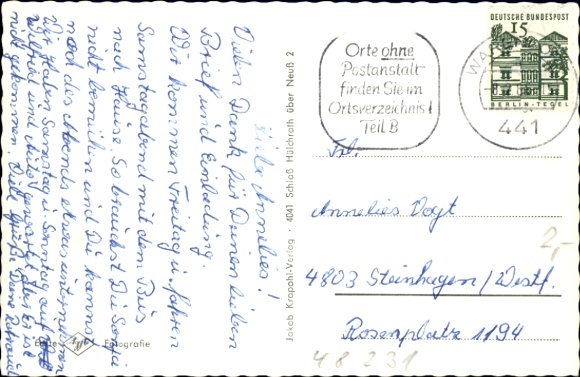 Liebe Annelies!
Vielen Dank für Deinen lieben
Brief und Einladung.
Wir kommen Freitag u. fahren
Samstagabend mit dem Bus
nach Hause. So brauchst Du Samstag
nicht bemühen und Du kannst
noch des Abends etwas unternehmen.
Wir haben Samstag u. Sonntag auf
Wilfried und Auto gewartet aber Er ist
nicht gekommen
Echte Agfa Fotografie
Jakob Krapohl-Verlag · 4041 Schloß Hülchrath über Neuß 2
Orte ohne
Postanstalt
finden Sie im
Ortsverzeichnis!
Teil B
DEUTSCHE BUNDESPOST
15
BERLIN-TEGEL
441
Frl.
Annelies Vogt
2,-
4803 Steinhagen/Westf.
Rosenplatz 1194
48231